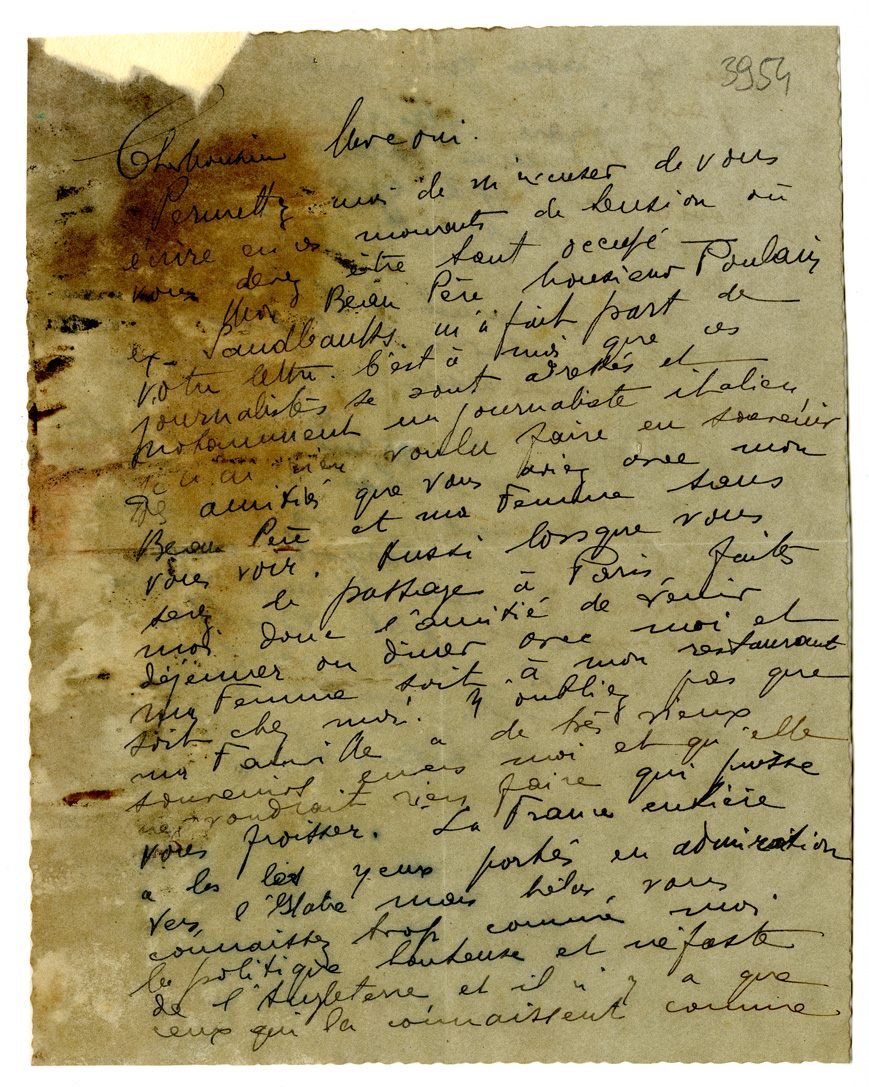 3954
Cher Monsieur Marconi.
Permettez moi de m'excuser de vous
écrire en ces moments de tension où
vous devez être tant occupé
Mon Beau Père Monsieur Poulain
ex- Sandbanks. m'a fait part de
votre lettre. C'est à moi que ces
journalistes se sont adressés et
notamment un journaliste italien,
je n'ai rien voulu faire en souvenir
des amitiés que vous aviez avec mon
Beau Père et ma Femme sans
vous voir. Aussi lorsque vous
serez de passage à Paris faites
moi donc l'amitié de venir
déjeuner ou diner avec moi et
ma Femme soit à mon restaurant
soit chez moi. N'oubliez pas que
ma Famille a de très vieux
souvenirs envers moi et qu'elle
ne voudrait rien faire qui puisse
vous froisser. La France entière
a les les yeux portés en admiration
vers l'Italie mais hélas vous
connaissez trop comme moi
la politique honteuse et néfaste
de l'Angleterre et il n'y a que
ceux qui la connaissent comme